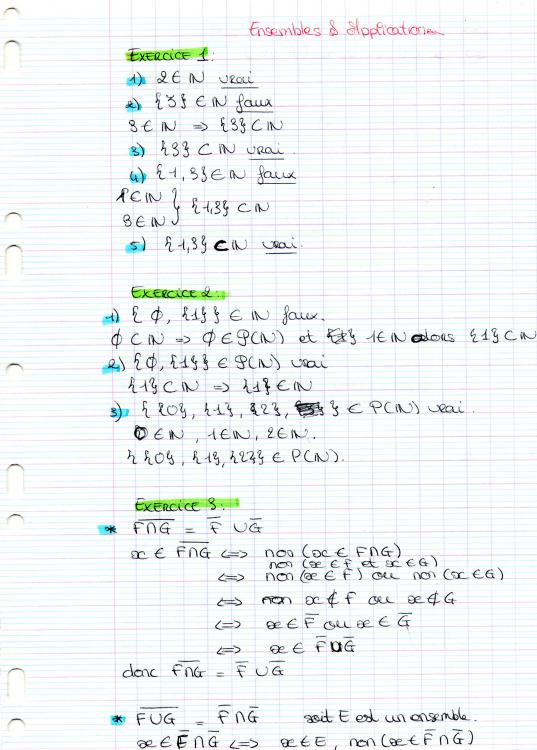 Ensembles & Applications
EXERCICE 1:
1) 2 ∈ IN vrai
2) {3} ∈ IN faux
3 ∈ IN => {3} ⊂ IN
3) {3} ⊂ IN vrai.
4) {1,3} ∈ IN faux
1 ∈ IN
3 ∈ IN } {1,3} ⊂ IN
5) {1,3} ⊂ IN vrai.
EXERCICE 2:
1) { ∅, {1}} ∈ IN faux.
∅ ⊂ IN => ∅ ∈ P(IN) et 1 ∈ IN alors {1} ⊂ IN
2) {∅, {1}} ∈ P(IN) vrai
{1} ⊂ IN => {1} ∈ IN
3) { {0}, {1}, {2}, } ∈ P(IN) vrai.
0 ∈ IN, 1 ∈ IN, 2 ∈ IN.
{ {0}, {1}, {2}} ∈ P(IN).
EXERCICE 3:
* F̅∩̅G̅ = F̅ ∪ G̅
x ∈ F̅∩̅G̅ <=> non (x ∈ F∩G)
non (x ∈ F et x ∈ G)
<=> non (x ∈ F) ou non (x ∈ G)
<=> x ∉ F ou x ∉ G
<=> x ∈ F̅ ou x ∈ G̅
<=> x ∈ F̅ ∪ G̅
donc F̅∩̅G̅ = F̅ ∪ G̅
* F̅∪̅G̅ = F̅ ∩ G̅ soit E est un ensemble.
x ∈ F̅ ∩ G̅ <=> x ∈ E, non (x ∈ F̅ ∩ G̅)